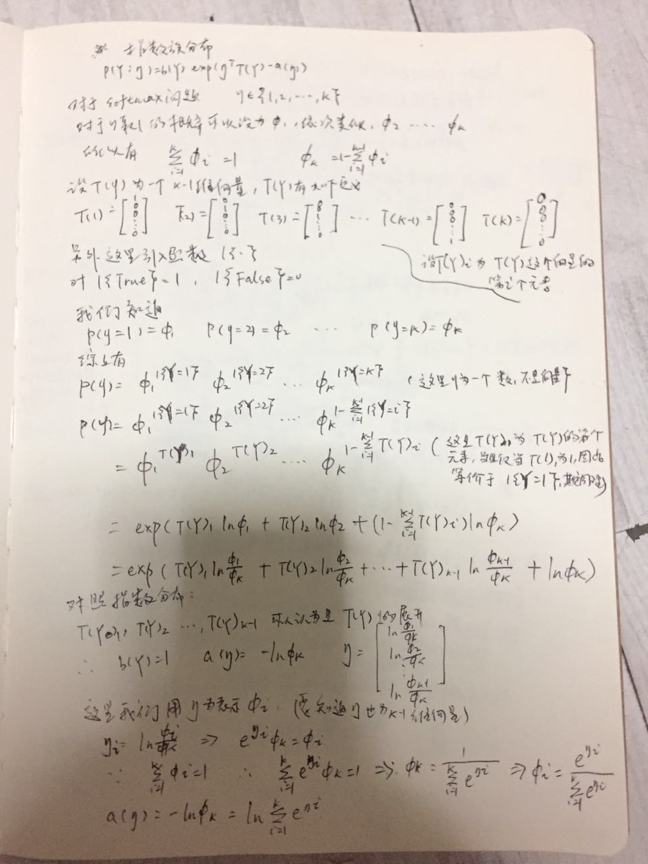 指数族分布
P(Y;η)=b(Y) exp(ηᵀT(Y)-a(η))
对于softmax问题 y∈{1,2,…,k}
对于y取1的概率可以设为φ₁,依次类似,φ₂ …… φₖ
所以有 Σᵢ₌₁ᵏ φᵢ=1 φₖ=1-Σᵢ₌₁ᵏ⁻¹φᵢ
设T(Y)为一个k-1维向量,T(Y)有如下定义
T(1)=[1 0 0 ⋮ 0] T(2)=[0 1 0 ⋮ 0] T(3)=[0 0 1 ⋮ 0] … T(k-1)=[0 0 0 ⋮ 1] T(k)=[0 0 0 ⋮ 0]
另外这里引入函数 1{·}
对1{True}=1, 1{False}=0
设T(Y)ᵢ为T(Y)这个向量的
第i个元素
我们知道
P(y=1)=φ₁ P(y=2)=φ₂ … P(y=k)=φₖ
综上有
P(y)= φ₁^1{Y=1} φ₂^1{Y=2} … φₖ^1{Y=k} (这里y为一个数,不是向量)
P(y)= φ₁^1{Y=1} φ₂^1{Y=2} … φₖ^(1-Σᵢ₌₁ᵏ⁻¹1{Y=i})
= φ₁^T(Y)₁ φ₂^T(Y)₂ … φₖ^(1-Σᵢ₌₁ᵏ⁻¹T(Y)ᵢ) (这里T(Y)₁为T(Y)的第个
元素,当且仅当T(1)₁为1,因此
等价于1{Y=1},其
= exp(T(Y)₁lnφ₁ + T(Y)₂lnφ₂ + (1-Σᵢ₌₁ᵏ⁻¹T(Y)ᵢ)lnφₖ)
= exp(T(Y)₁ln(φ₁/φₖ) + T(Y)₂ln(φ₂/φₖ) + … + T(Y)ₖ₋₁ln(φₖ₋₁/φₖ) + lnφₖ)
对照指数分布:
T(Y)₁, T(Y)₂ …, T(Y)ₖ₋₁ 可以认为是 T(Y)的展开
∴ b(Y)=1 a(η)=-lnφₖ η=[ln(φ₁/φₖ) ln(φ₂/φₖ) ⋮ ln(φₖ₋₁/φₖ)]
这里我们用η来表示φᵢ. (要知道η也为k-1维向量)
ηᵢ=ln(φᵢ/φₖ) ⇒ e^ηᵢ φₖ=φᵢ
∵ Σᵢ₌₁ᵏφᵢ=1 ∴ Σᵢ₌₁ᵏe^ηᵢ φₖ=1 ⇒ φₖ=1/(Σᵢ₌₁ᵏe^ηᵢ) ⇒ φᵢ=e^ηᵢ/(Σᵢ₌₁ᵏe^ηᵢ)
a(η)=-lnφₖ=lnΣᵢ₌₁ᵏe^ηᵢ